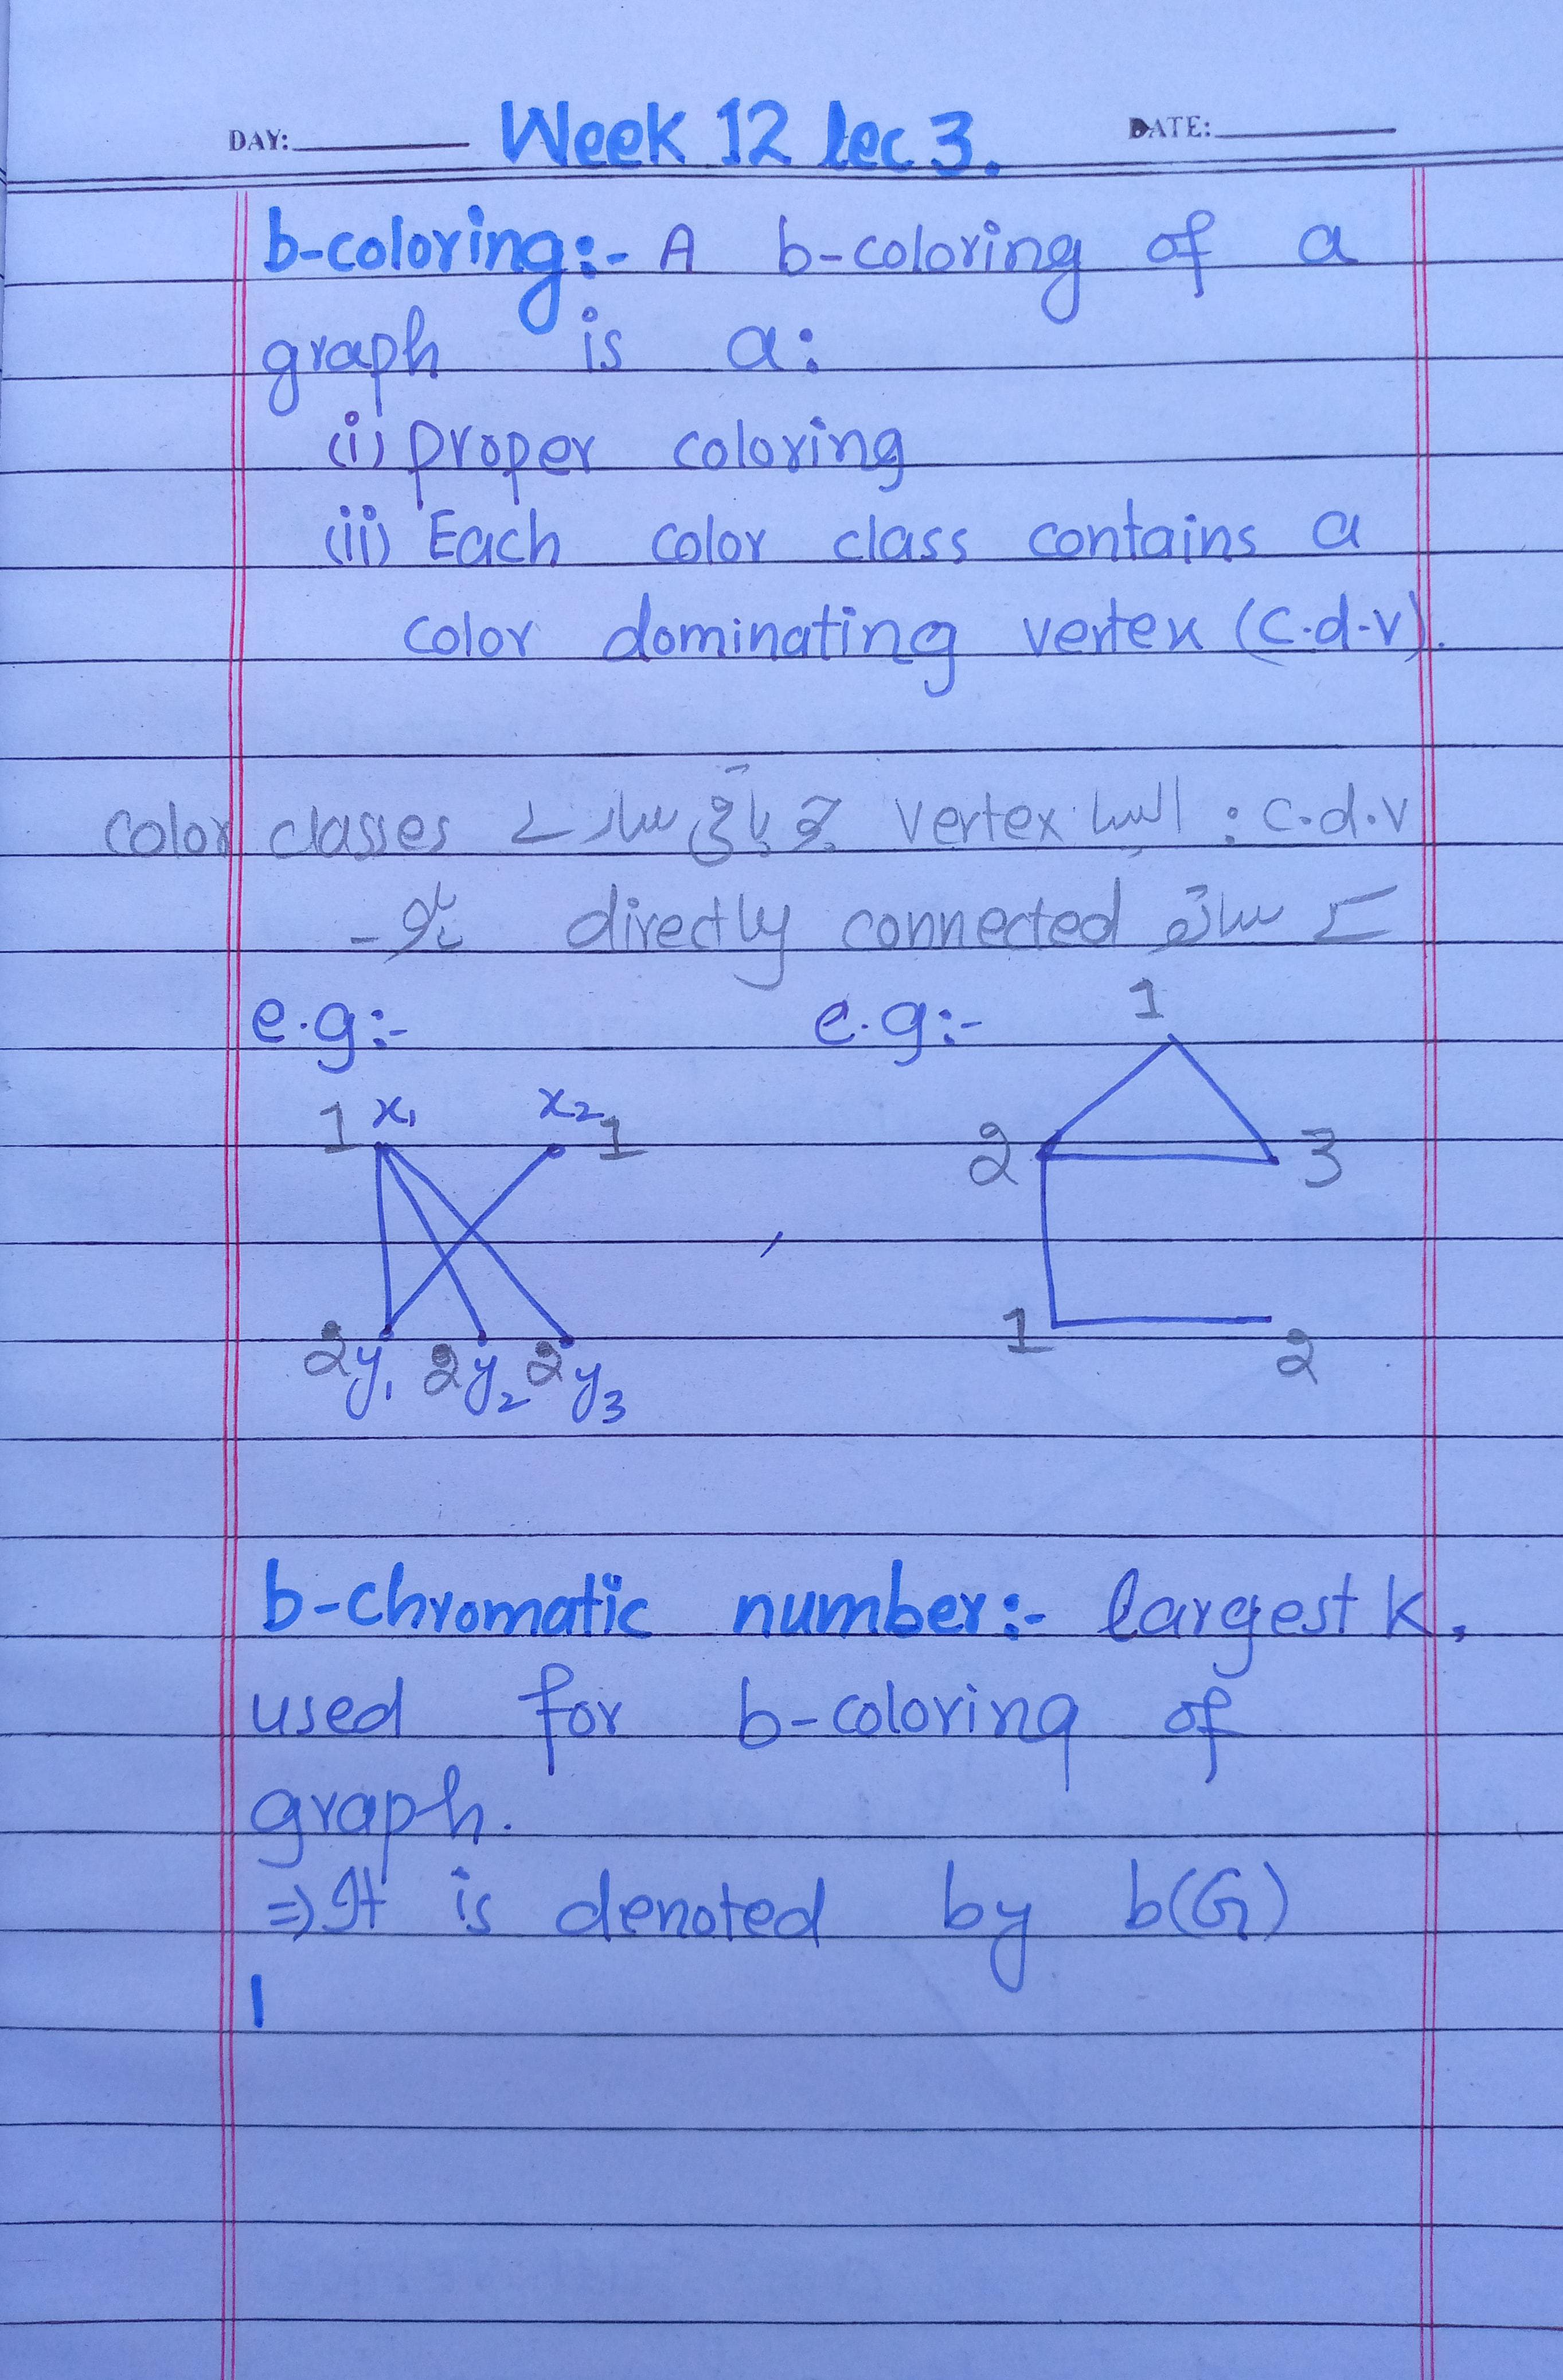 DAY: Week 12 lec 3. DATE:
b-coloring:- A b-coloring of a
graph is a:
(i) proper coloring
(ii) Each color class contains a
color dominating vertex (c.d.v).
c.d.v : ایسا vertex جو باقی سارے color classes
کے ساتھ directly connected ہو۔
e.g:- e.g:-
1
1 x₁ x₂ 1
2 3
2y₁ 2y₂ 2y₃
1 2
b-chromatic number:- largest k,
used for b-coloring of
graph.
⇒ It is denoted by b(G)